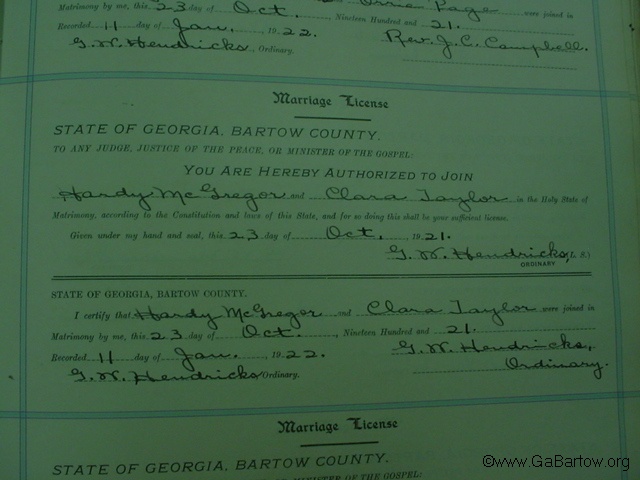 Matrimony by me, this 23 day of Oct., Nineteen Hundred and 21.
Page were joined in
Recorded 11 day of Jan., 1922.
G. W. Hendricks, Ordinary.
Rev. J. C. Campbell.
Marriage License
STATE OF GEORGIA, BARTOW COUNTY.
TO ANY JUDGE, JUSTICE OF THE PEACE, OR MINISTER OF THE GOSPEL:
YOU ARE HEREBY AUTHORIZED TO JOIN
Hardy McGregor and Clara Taylor in the Holy State of
Matrimony, according to the Constitution and laws of this State, and for so doing this shall be your sufficient license.
Given under my hand and seal, this 23 day of Oct. 1921.
G. W. Hendricks, (L. S.)
ORDINARY
STATE OF GEORGIA, BARTOW COUNTY.
I certify that Hardy McGregor and Clara Taylor were joined in
Matrimony by me, this 23 day of Oct., Nineteen Hundred and 21.
Recorded 11 day of Jan. 1922.
G. W. Hendricks,
G. W. Hendricks Ordinary.
Ordinary.
Marriage License
STATE OF GEORGIA, BARTOW COUNTY.
MINISTER OF THE GOSPEL:
©www.GaBartow.org